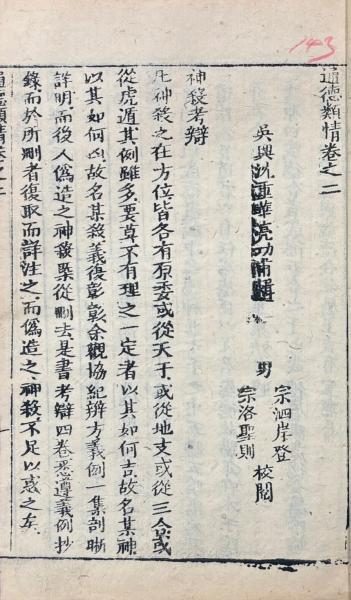 143
通德類情卷之二
吳興沈重華亮功補輯
男 宗泗岸登
宗洛聖則 校閱
神殺考辯
凡神殺之在方位皆各有原委或從天干或從地支或從三合或
從虎遁其例雖多要莫不有理之一定者以其如何吉故名某神
以其如何凶故名某殺義復彰彰余觀協紀辨方義例一集剖晰
詳明而後人偽造之神殺槩從刪去是書考辯四卷悉遵義例抄
錄而於所刪者復取而詳注之而偽造之神殺不足以惑之矣
通德類情卷之二